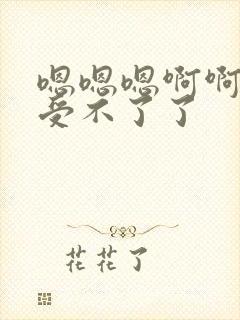 嗯嗯嗯啊啊
受不了了
花花了